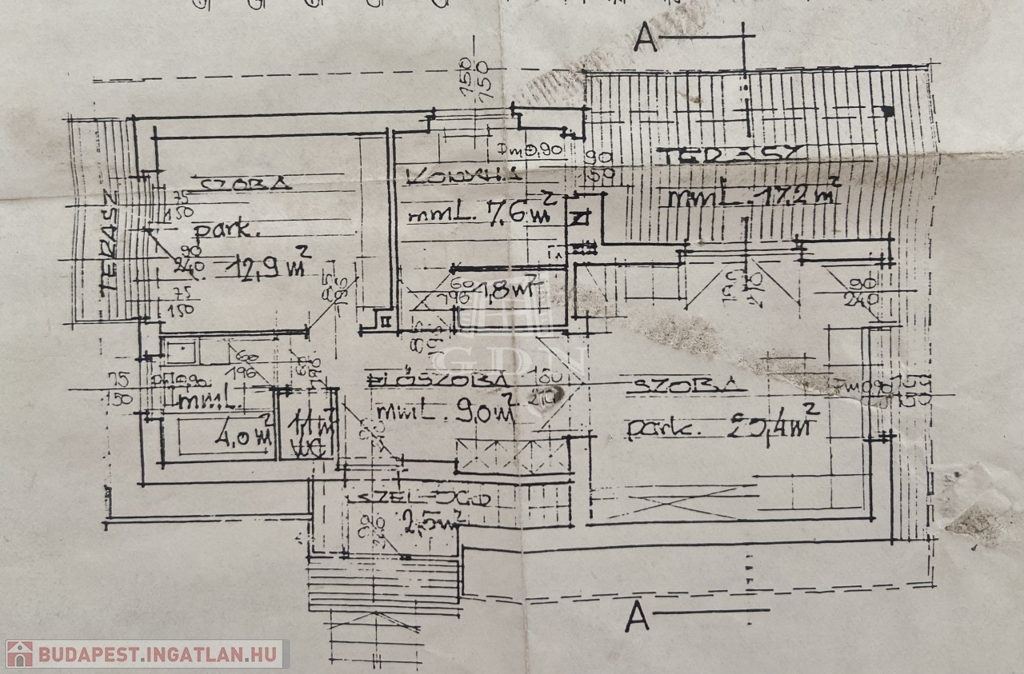 A
150
150
Pm 0,90
90
150
TERASZ
mmL. 17,2 m²
KONYHA
mmL. 7,6 m²
SZOBA
park.
12,9 m²
TERASZ
75
150
90
240
75
150
85
196
60
196
1,8 m²
90
240
75
150
Pm 0,90
60
196
mmL.
4,0 m²
1,1 m²
WC
GDN
ELŐSZOBA
mmL. 9,0 m²
160
210
SZOBA
park.
Pm 0,90
150
150
SZÉLFOGÓ
2,5 m²
A
BUDAPEST.INGATLAN.HU